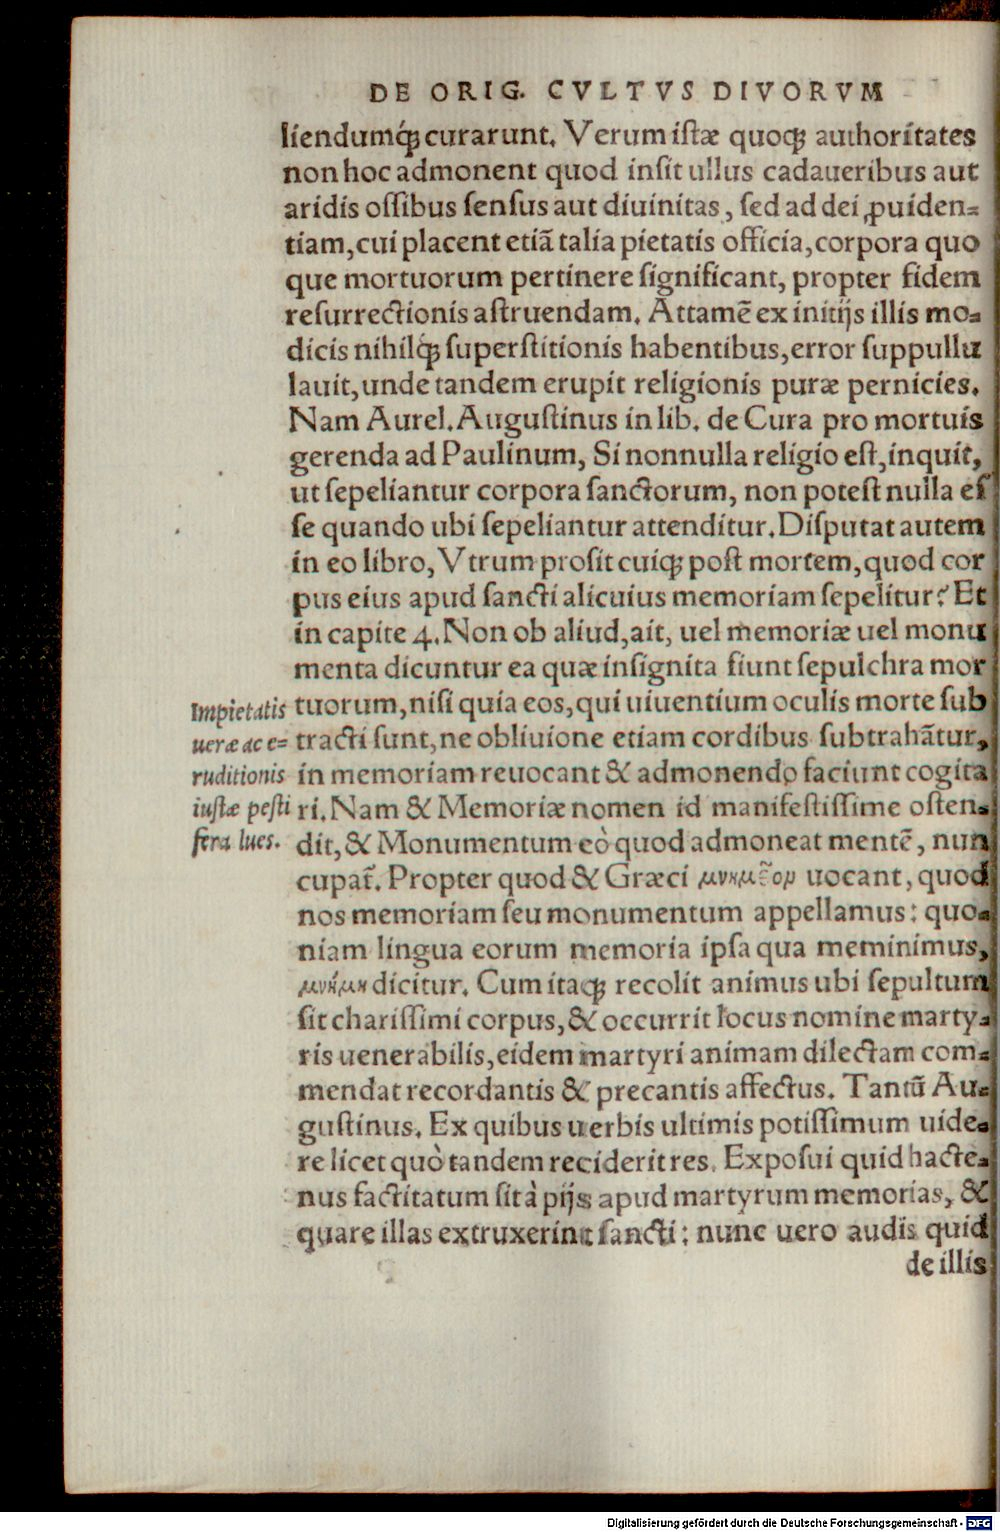 DE ORIG. CVLTVS DIVORVM
liendumq́ꝫ curarunt. Verum istæ quoqꝫ authoritates
non hoc admonent quod insit ullus cadaueribus aut
aridis ossibus sensus aut diuinitas, sed ad dei ꝓuiden=
tiam, cui placent etiā talia pietatis officia, corpora quo
que mortuorum pertinere significant, propter fidem
resurrectionis astruendam. Attamē ex initijs illis mo=
dicis nihilq́ꝫ superstitionis habentibus, error suppullu
lauit, unde tandem erupit religionis puræ pernicies.
Nam Aurel. Augustinus in lib. de Cura pro mortuis
gerenda ad Paulinum, Si nonnulla religio est, inquit,
ut sepeliantur corpora sanctorum, non potest nulla es
se quando ubi sepeliantur attenditur. Disputat autem
in eo libro, Vtrum prosit cuiqꝫ post mortem, quod cor
pus eius apud sancti alicuius memoriam sepelitur? Et
in capite 4. Non ob aliud, ait, uel memoriæ uel monu
menta dicuntur ea quæ insignita fiunt sepulchra mor
tuorum, nisi quia eos, qui uiuentium oculis morte sub
tracti sunt, ne obliuione etiam cordibus subtrahātur,
in memoriam reuocant & admonendo faciunt cogita
ri. Nam & Memoriæ nomen id manifestissime osten=
dit, & Monumentum eò quod admoneat mentē, nun
cupat̃. Propter quod & Græci μνημεῖον uocant, quod
nos memoriam seu monumentum appellamus: quo=
niam lingua eorum memoria ipsa qua meminimus,
μνήμη dicitur. Cum itaqꝫ recolit animus ubi sepultum
sit charissimi corpus, & occurrit locus nomine marty=
ris uenerabilis, eidem martyri animam dilectam com=
mendat recordantis & precantis affectus. Tantū Au=
gustinus. Ex quibus uerbis ultimis potissimum uide=
re licet quò tandem reciderit res. Exposui quid hacte=
nus factitatum sit à pijs apud martyrum memorias, &
quare illas extruxerint sancti: nunc uero audis quid
de illis
Impietatis
ueræ ac e=
ruditionis
iustæ pesti
fera lues.
Digitalisierung gefördert durch die Deutsche Forschungsgemeinschaft - DFG